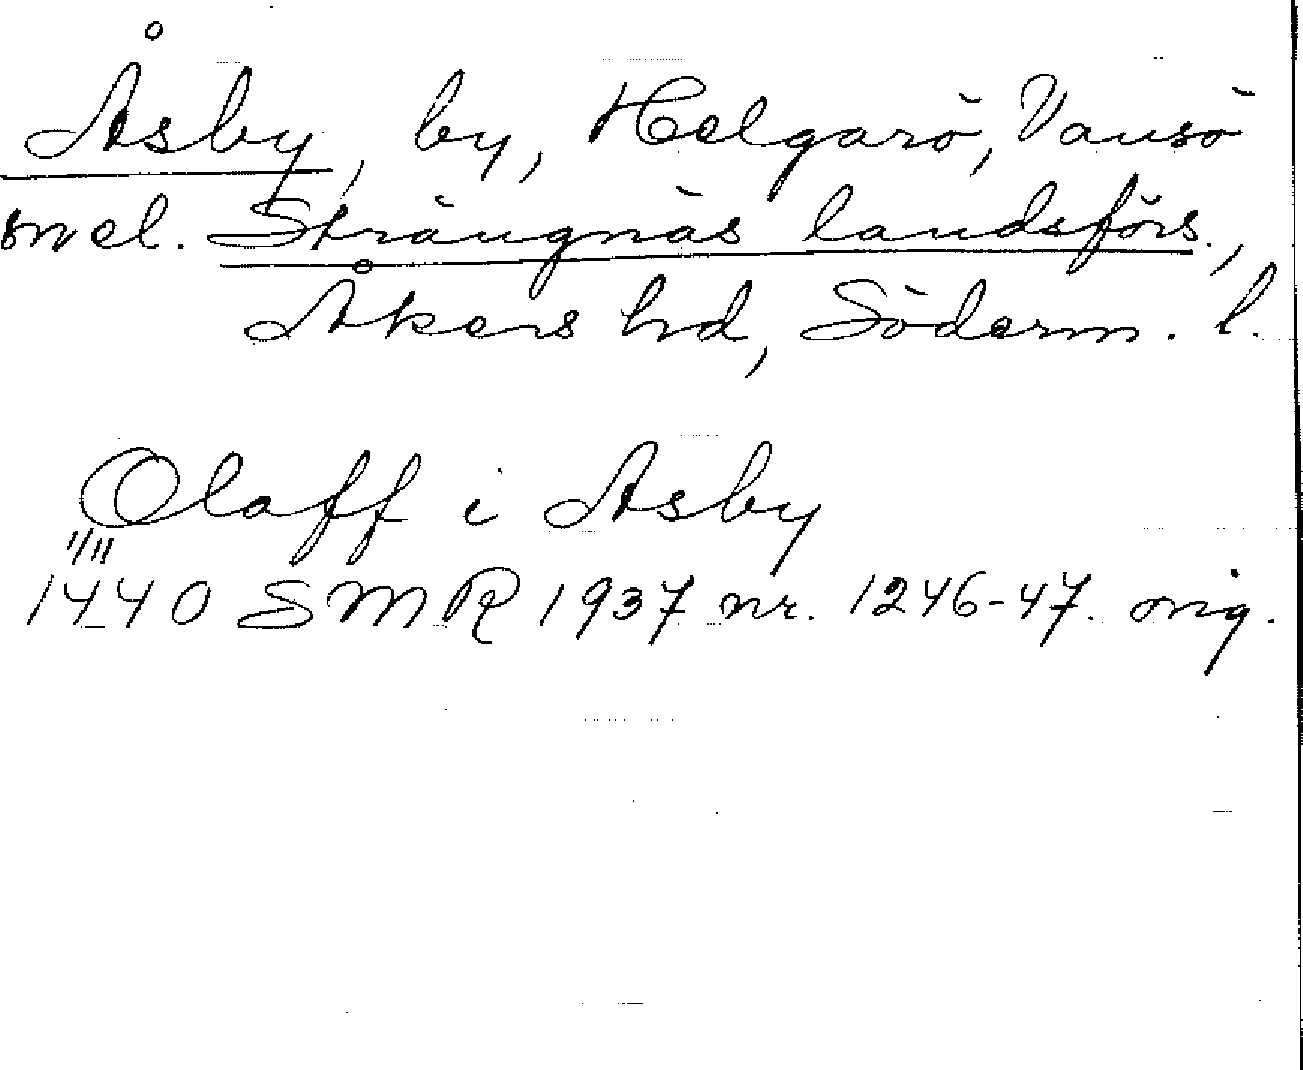 Åsby, by, Helgarö, Vansö
smel. Strängnäs landsförs.,
Åkers hd, Söderm. l.
Olaff i Asby
11/11
1440 SMR 1937 nr. 1246-47. orig.